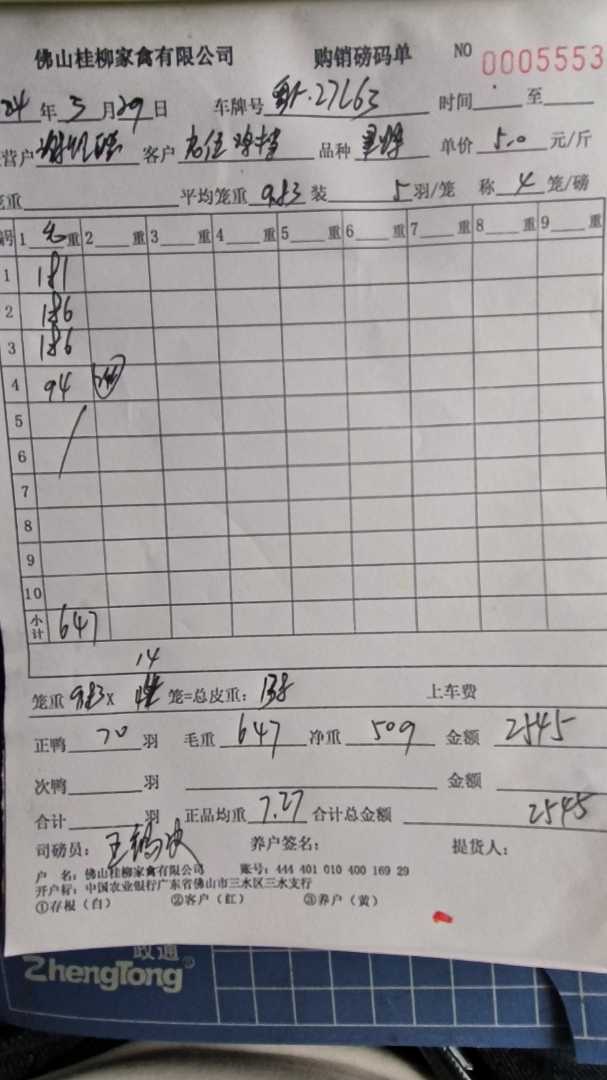 佛山桂柳家禽有限公司 购销磅码单 NO 0005553
24年5月29日 车牌号 27L63 时间 至
营户 客户 品种 单价 5.0 元/斤
笼重 平均笼重 9.83 装 5 羽/笼 称 4 笼/磅
编号 1 毛 重 2 重 3 重 4 重 5 重 6 重 7 重 8 重 9 重
1 181
2 186
3 186
4 94
5
6
7
8
9
10
小计 647
14
笼重 9.83 X 笼=总皮重: 138 上车费
正鸭 70 羽 毛重 647 净重 509 金额 2545
次鸭 羽 金额
合计 羽 正品均重 7.27 合计总金额 2545
司磅员: 王 养户签名: 提货人:
户 名: 佛山桂柳家禽有限公司 账号: 444 401 010 400 169 29
开户行: 中国农业银行广东省佛山市三水区三水支行
①存根(白) ②客户(红) ③养户(黄)
政通
ZhengTong®